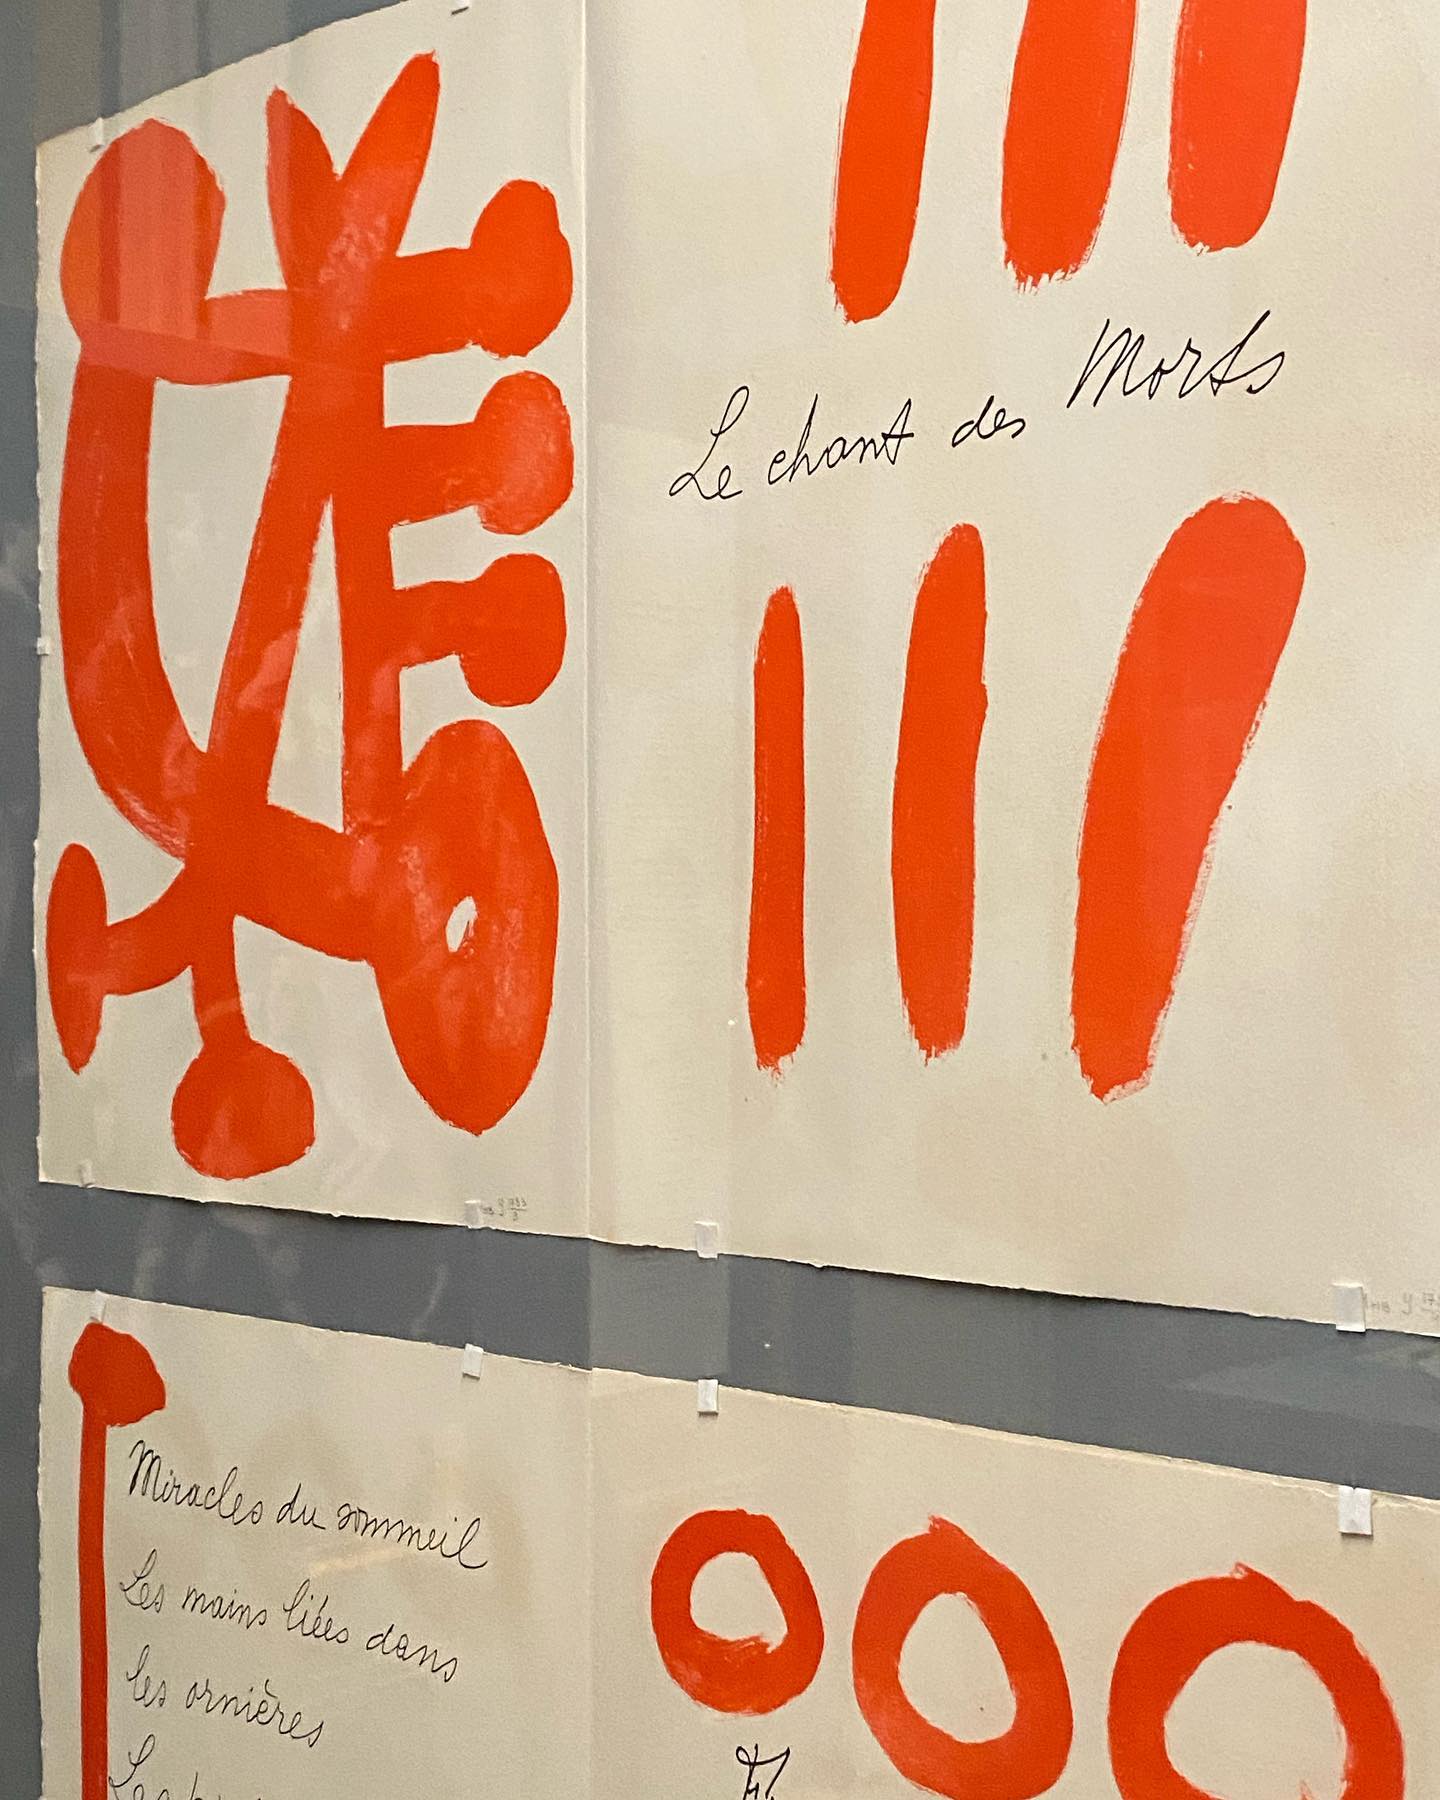 Le chant des Morts
Miracles du sommeil
Les mains liées dans
les ornières